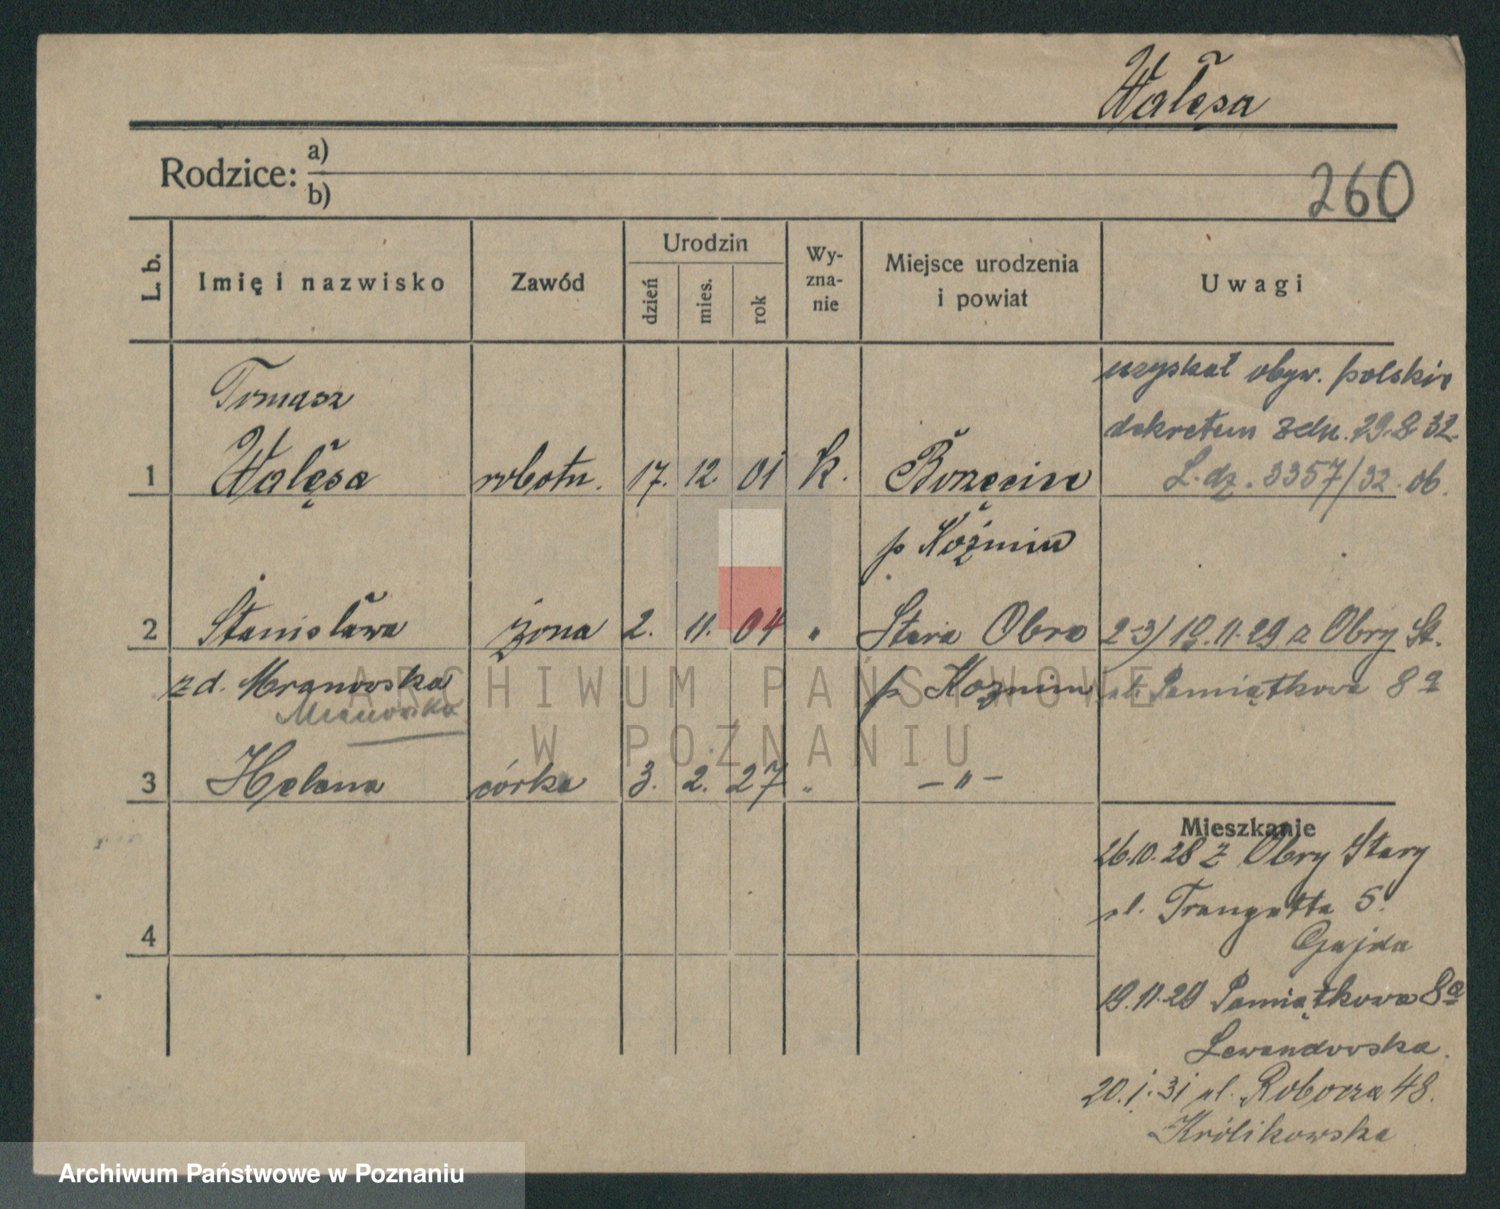 Wałęsa
Rodzice: a)
b)
260
L. b.
Imię i nazwisko
Zawód
Urodzin
dzień
mies.
rok
Wy-
zna-
nie
Miejsce urodzenia
i powiat
Uwagi
Tomasz
1 Wałęsa robotn. 17. 12. 01 k. Borzęcice
p Koźmin
uzyskał obyw. polskie
dekretem zdn. 29.8 32.
L. dz. 3357/32 ob.
2 Stanisława żona 2. 11. 04 " Stara Obra
z d. Mranowska p Kozmin
Mianowska
2-3) 19.11.29 z Obry St.
ul. Pamiątkowa 8a
3 Helena córka 3. 2. 27 " — " —
4
Mieszkanie
26.10.28 z Obry Stary
ul. Traugutta 5.
Gajda
19.11.29 Pamiątkowa 8a
Lewandowska.
20.1.31 ul. Robocza 48.
Królikowska
ARCHIWUM PAŃSTWOWE
W POZNANIU
Archiwum Państwowe w Poznaniu